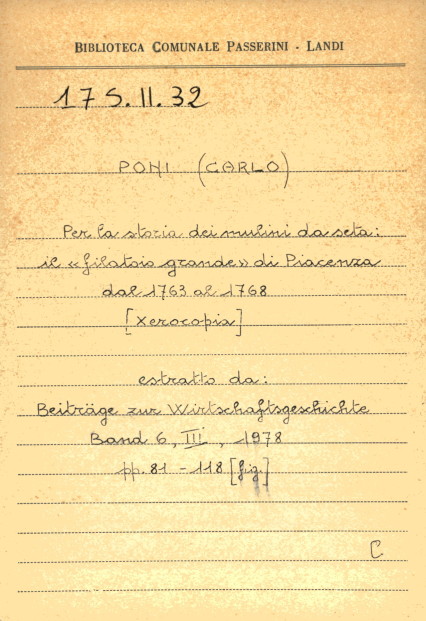 BIBLIOTECA COMUNALE PASSERINI - LANDI
175.II.32
PONI (CARLO)
Per la storia dei mulini da seta:
il «filatoio grande» di Piacenza
dal 1763 al 1768
[Xerocopia]
estratto da:
Beiträge zur Wirtschaftsgeschichte
Band 6, III, 1978
pp. 81-118 [fig.]
C